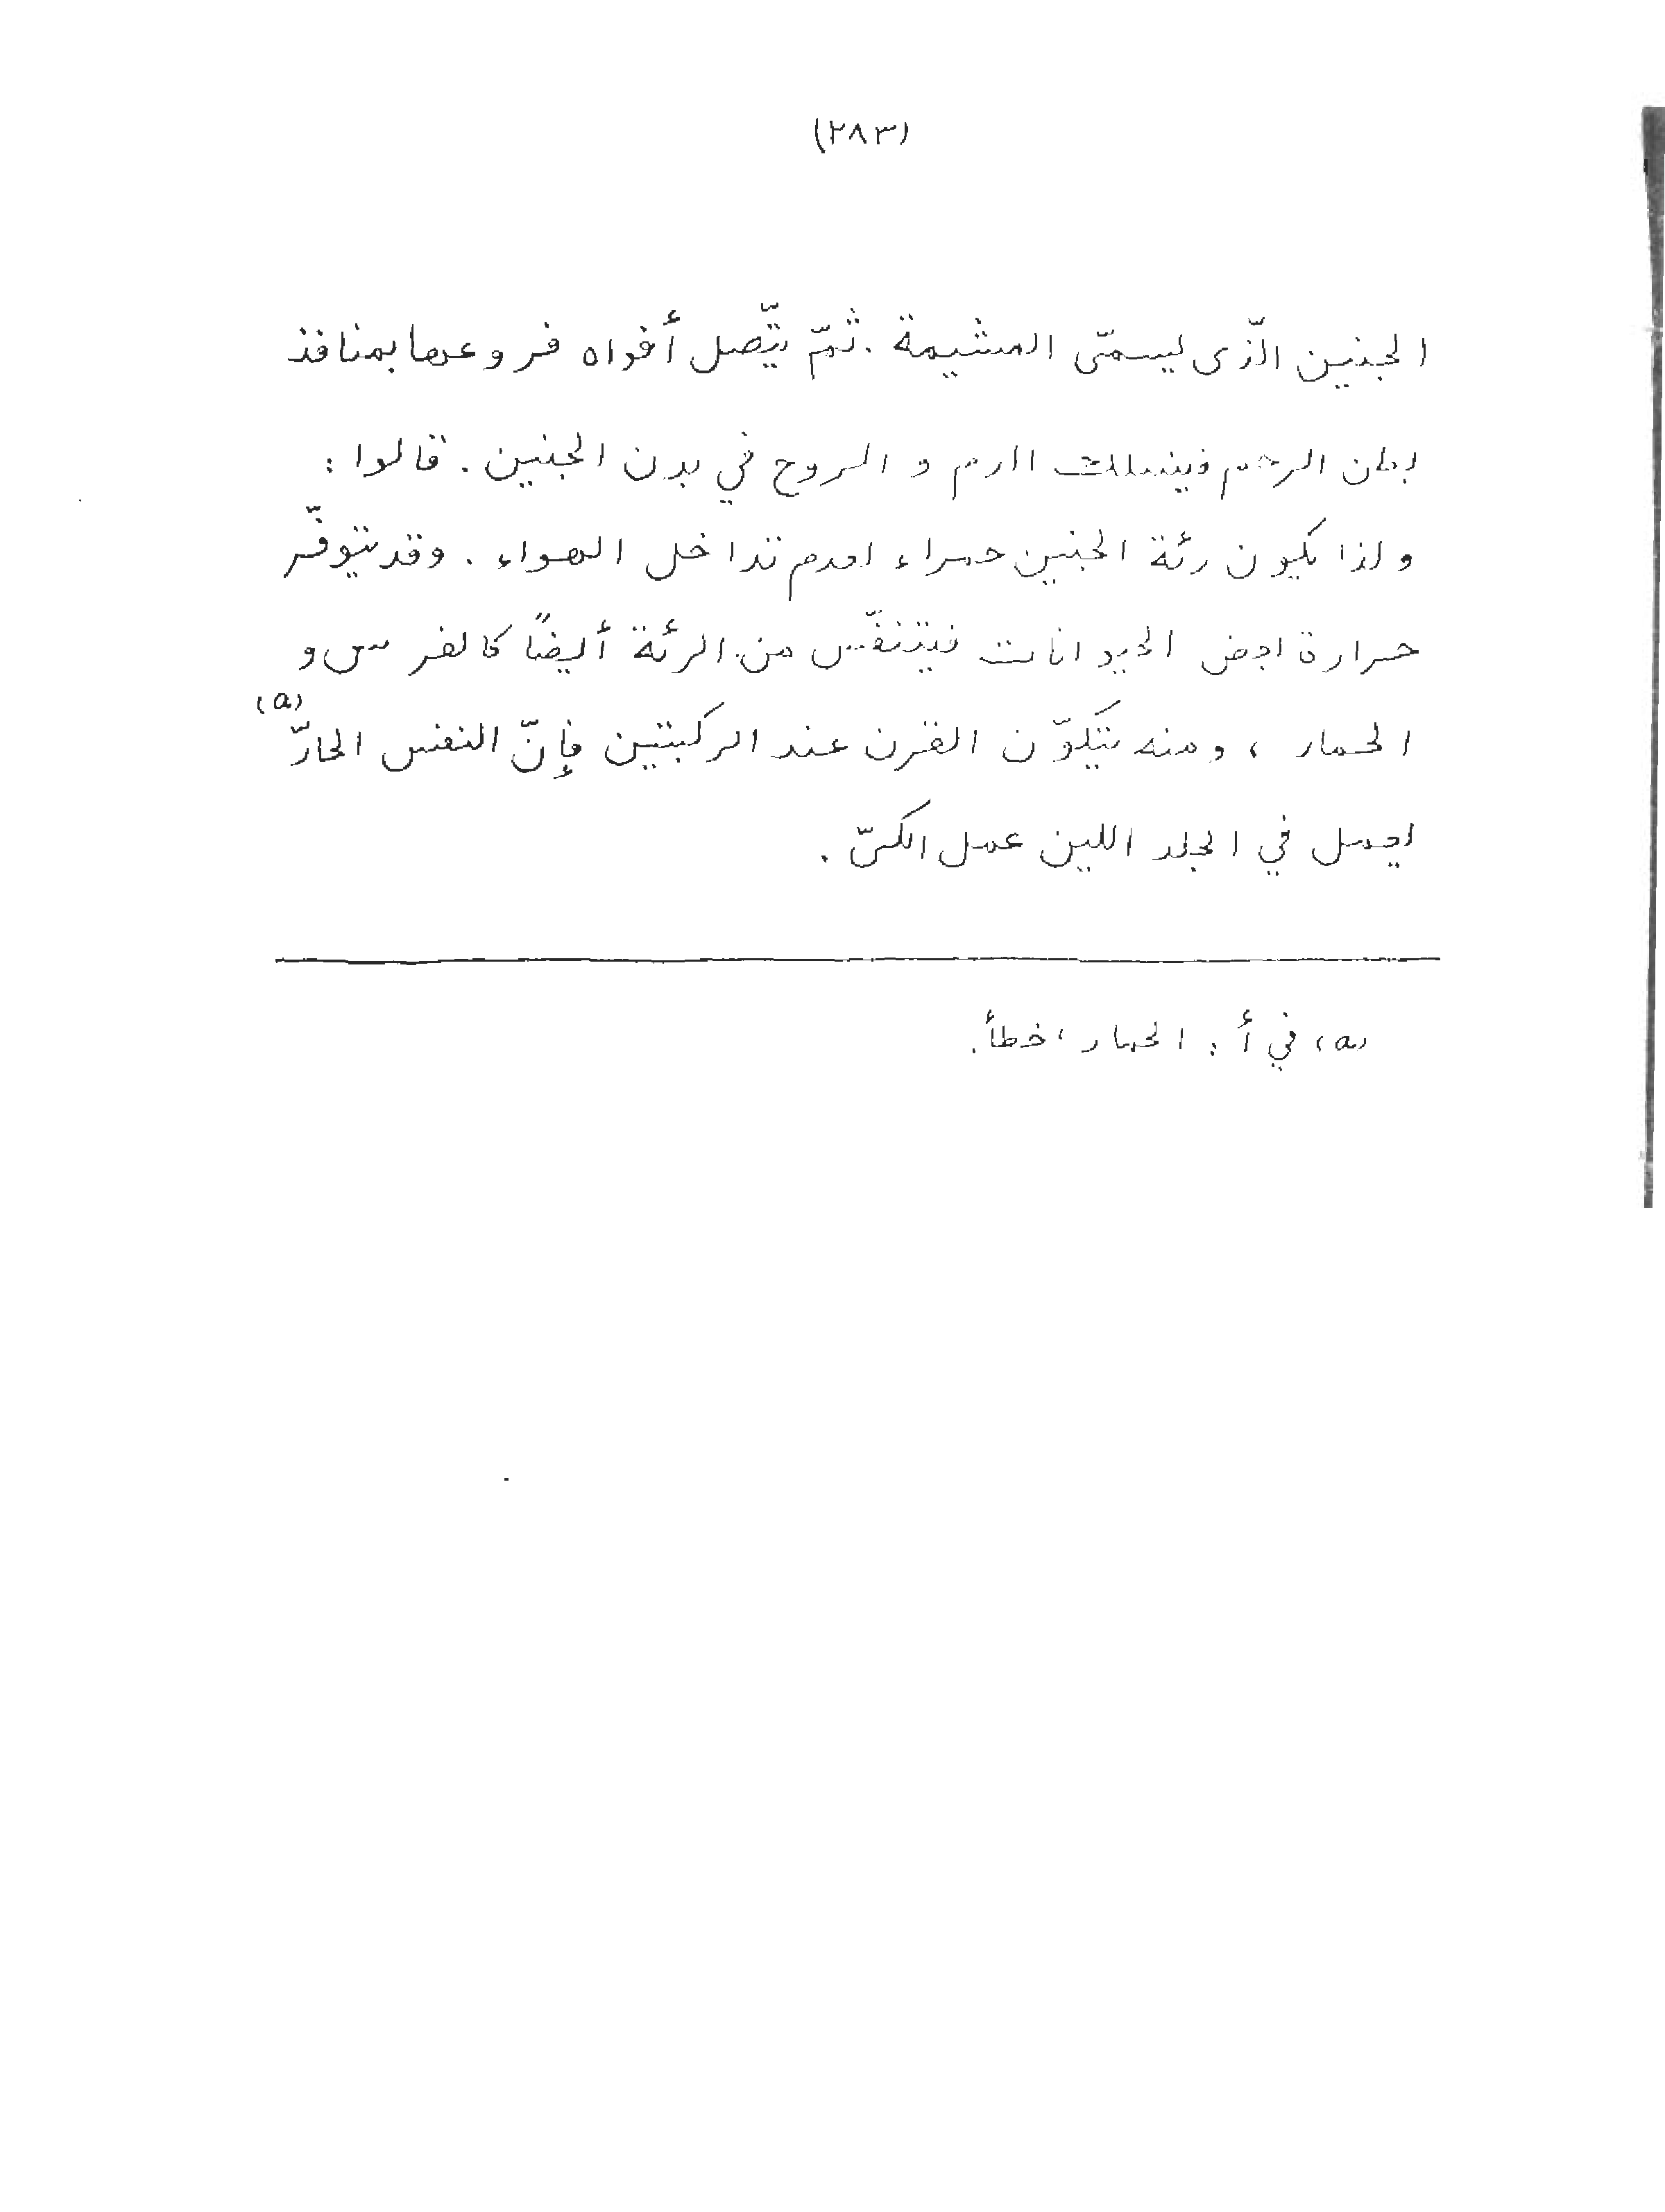 (٢٨٣)
الجنين الّذى يسمّى المشيمة . ثمّ يتّصل أفواه فروعها بمنافذ
بطن الرحم فينسلك الدم و الروح في بدن الجنين . قالوا :
ولذا يكون رئة الجنين حمراء لعدم تداخل الهواء . وقد يتوفّر
حرارة بعض الحيوانات فيتنفّس من الرئة أيضًا كالفرس و
الحمار ، ومنه يتكوّن القرن عند الركبتين فإنّ النفس الحارّ (a)
يعمل في الجلد اللين عمل الكيّ .
(a) في أ : الحمار ، خطأ .